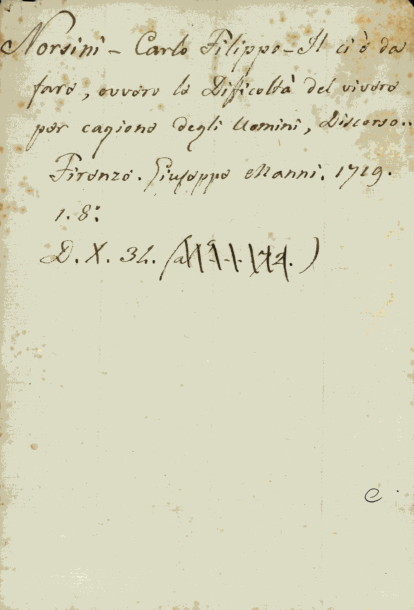 Norsini - Carlo Filippo - Il ci è da
fare, ovvero le Dificoltà del vivere
per cagione degli Uomini, Discorso..
Firenze. Giuseppe Manni. 1719.
1. 8°.
D. X. 34.
e